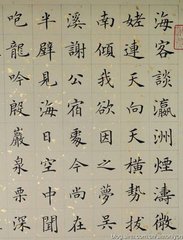 海客談瀛洲煙濤微
姥連天向天橫勢拔
南傾我欲因之夢吳
溪謝公宿處今尚在
半壁見海日空中聞
咆龍吟殷巖泉栗深